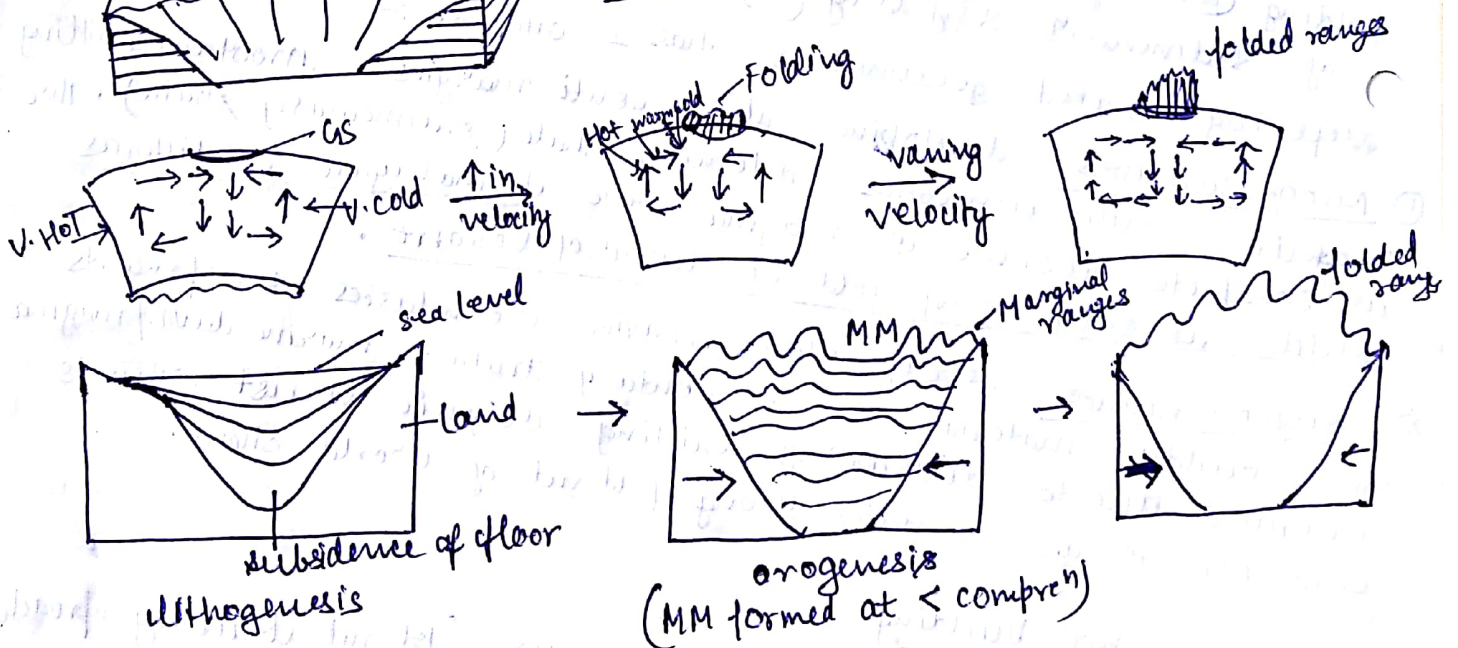 folded ranges
Folding
Hot warm cold
GS
V. HOT
V. cold
↑ in
velocity
varing
velocity
sea level
land
subsidence of floor
lithogenesis
MM
Marginal
ranges
orogenesis
(MM formed at < compreⁿ)
folded
rangs